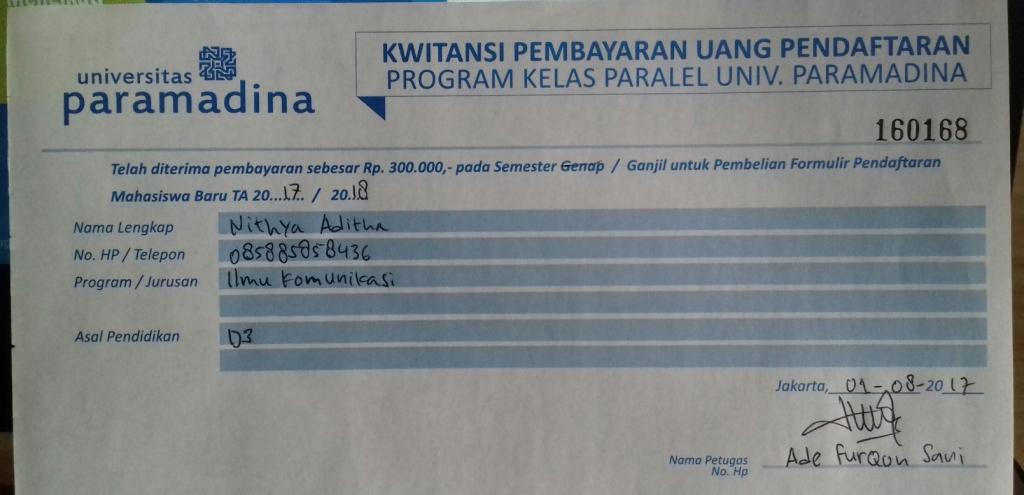 universitas
paramadina
KWITANSI PEMBAYARAN UANG PENDAFTARAN
PROGRAM KELAS PARALEL UNIV. PARAMADINA
160168
Telah diterima pembayaran sebesar Rp. 300.000,- pada Semester Genap / Ganjil untuk Pembelian Formulir Pendaftaran
Mahasiswa Baru TA 20...17.. / 20.18
Nama Lengkap Nithya Aditha
No. HP / Telepon 085885858436
Program / Jurusan Ilmu Komunikasi
Asal Pendidikan D3
Jakarta, 01-08-2017
Nama Petugas Ade Furqon Savi
No. Hp